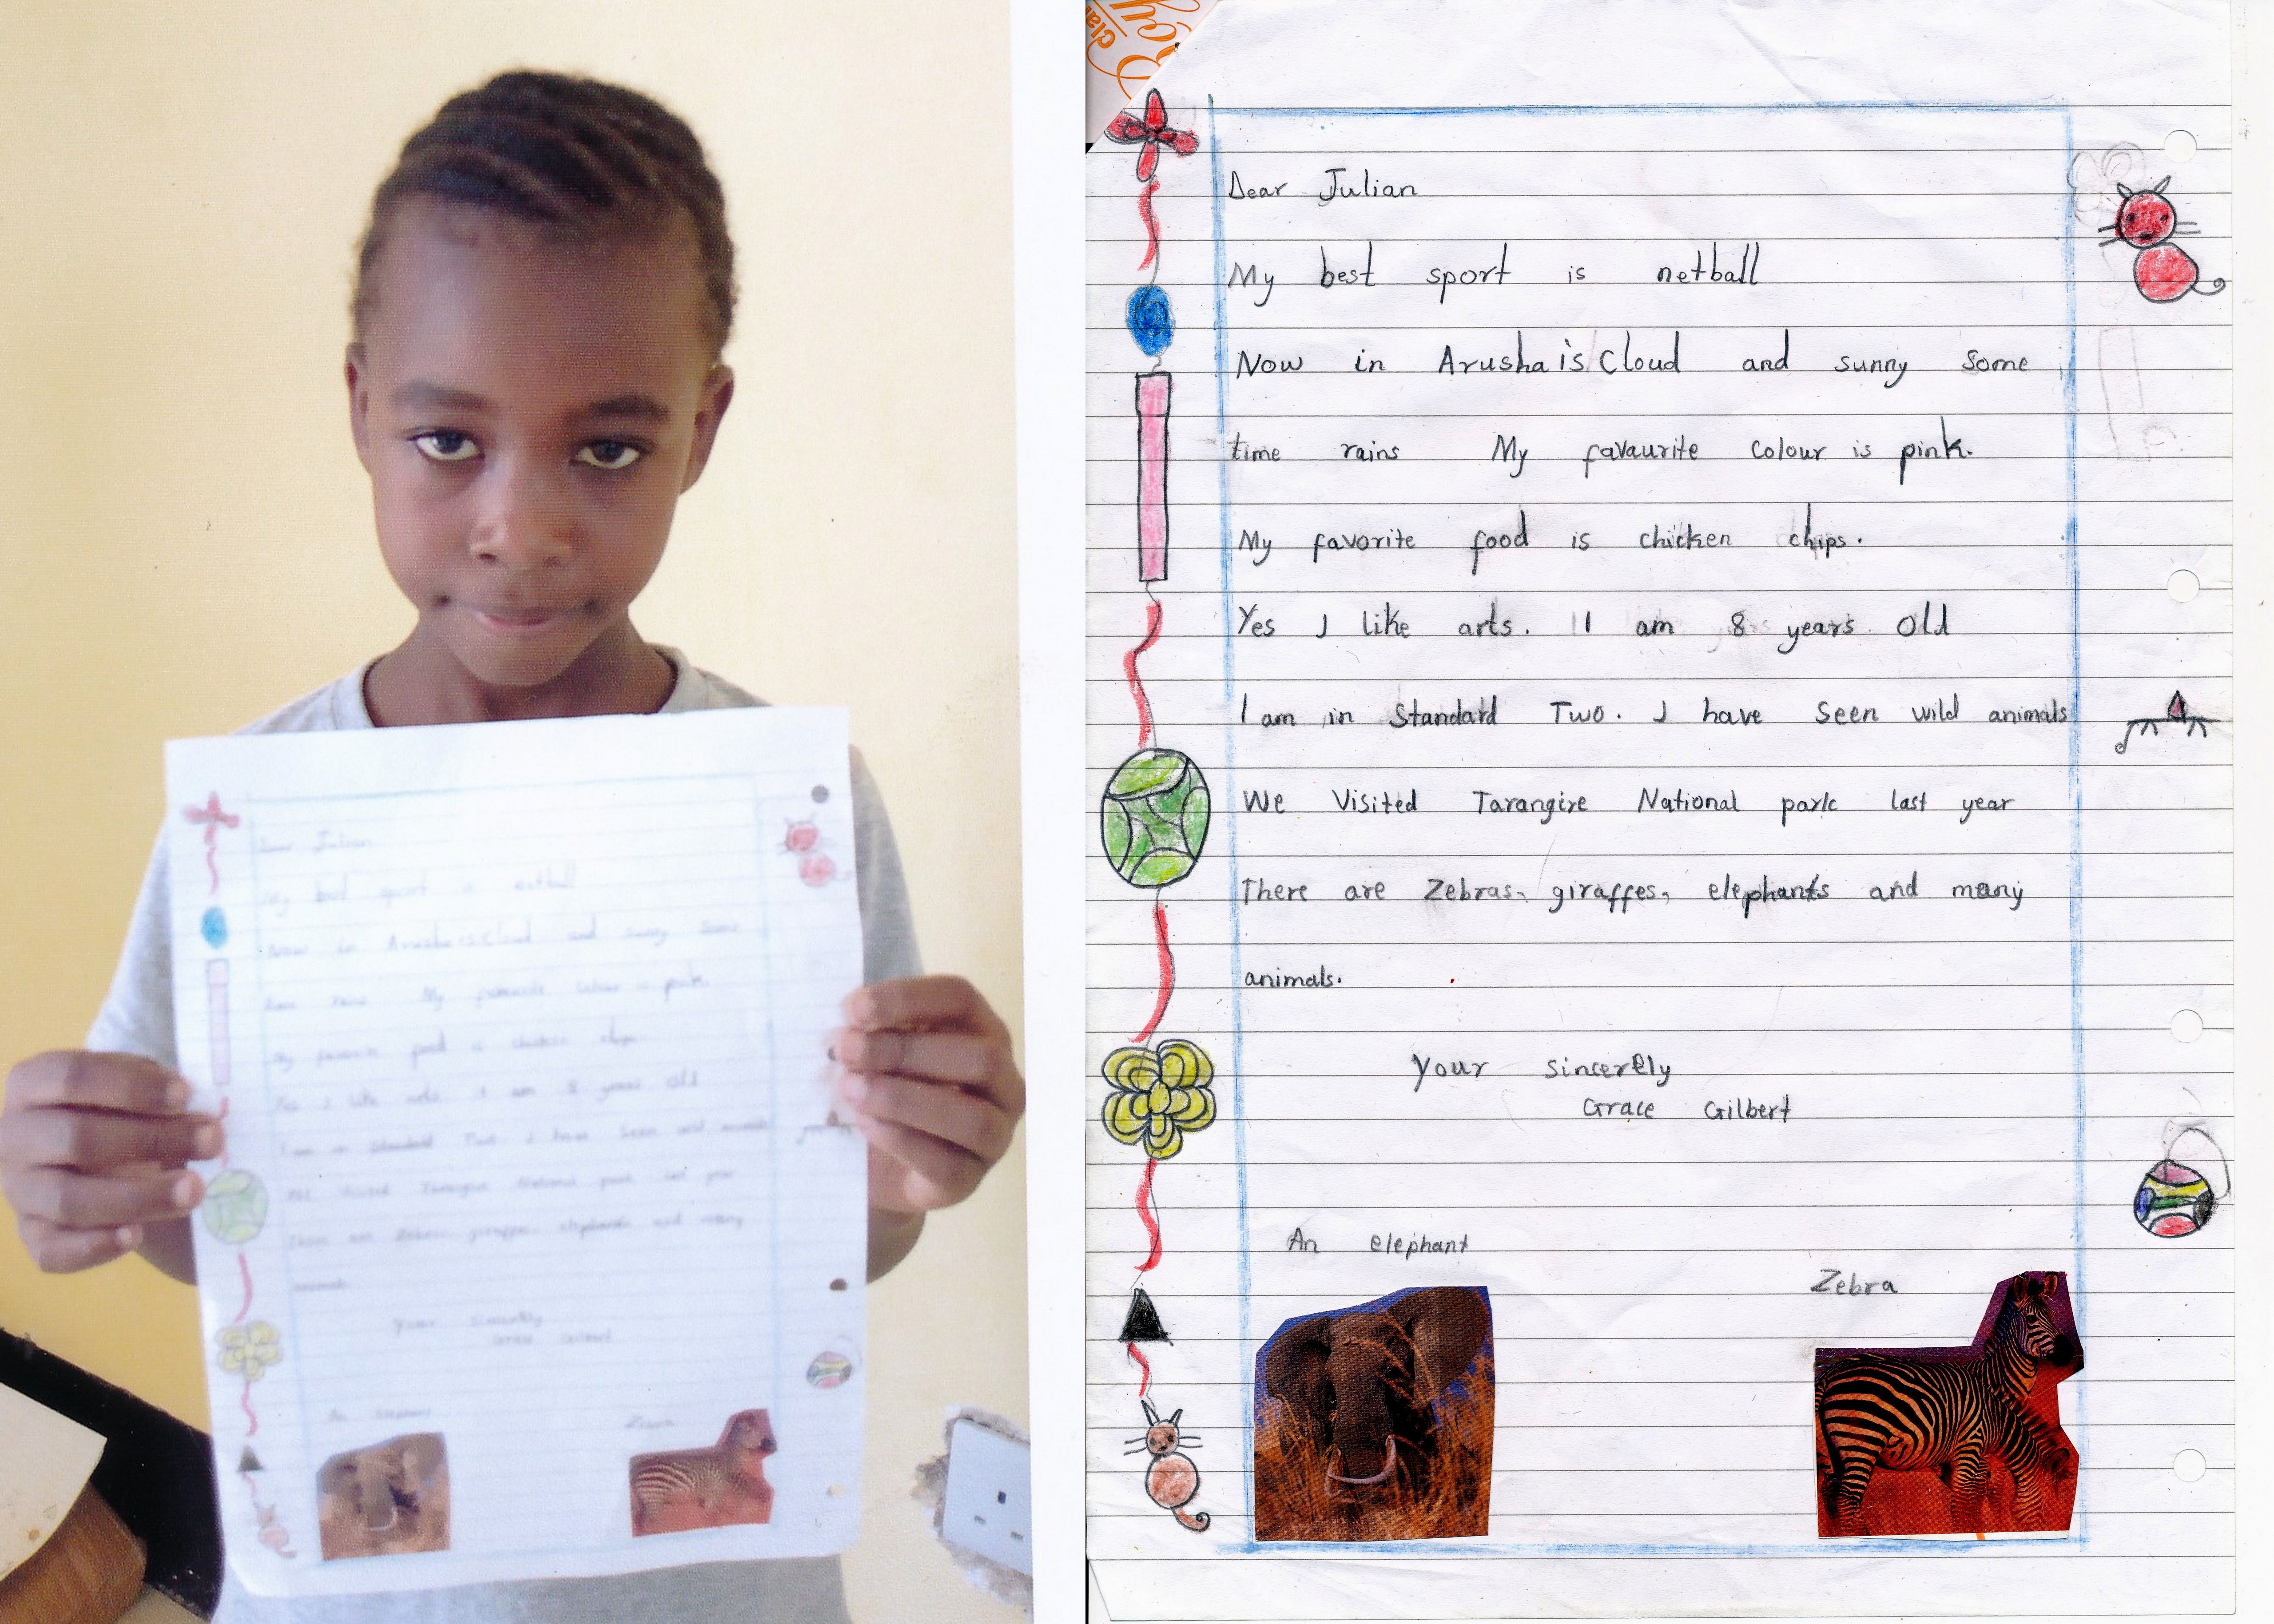 Dear Julian
My best sport is netball
Now in Arusha is Cloud and sunny Some
time rains My favaurite Colour is pink.
My favorite food is chicken chips.
Yes I like arts. I am 8 years old
I am in Standard Two. I have Seen wild animals
We Visited Tarangire National park last year
There are Zebras, giraffes, elephants and many
animals.
Your sincerely
Grace Gilbert
An elephant
Zebra